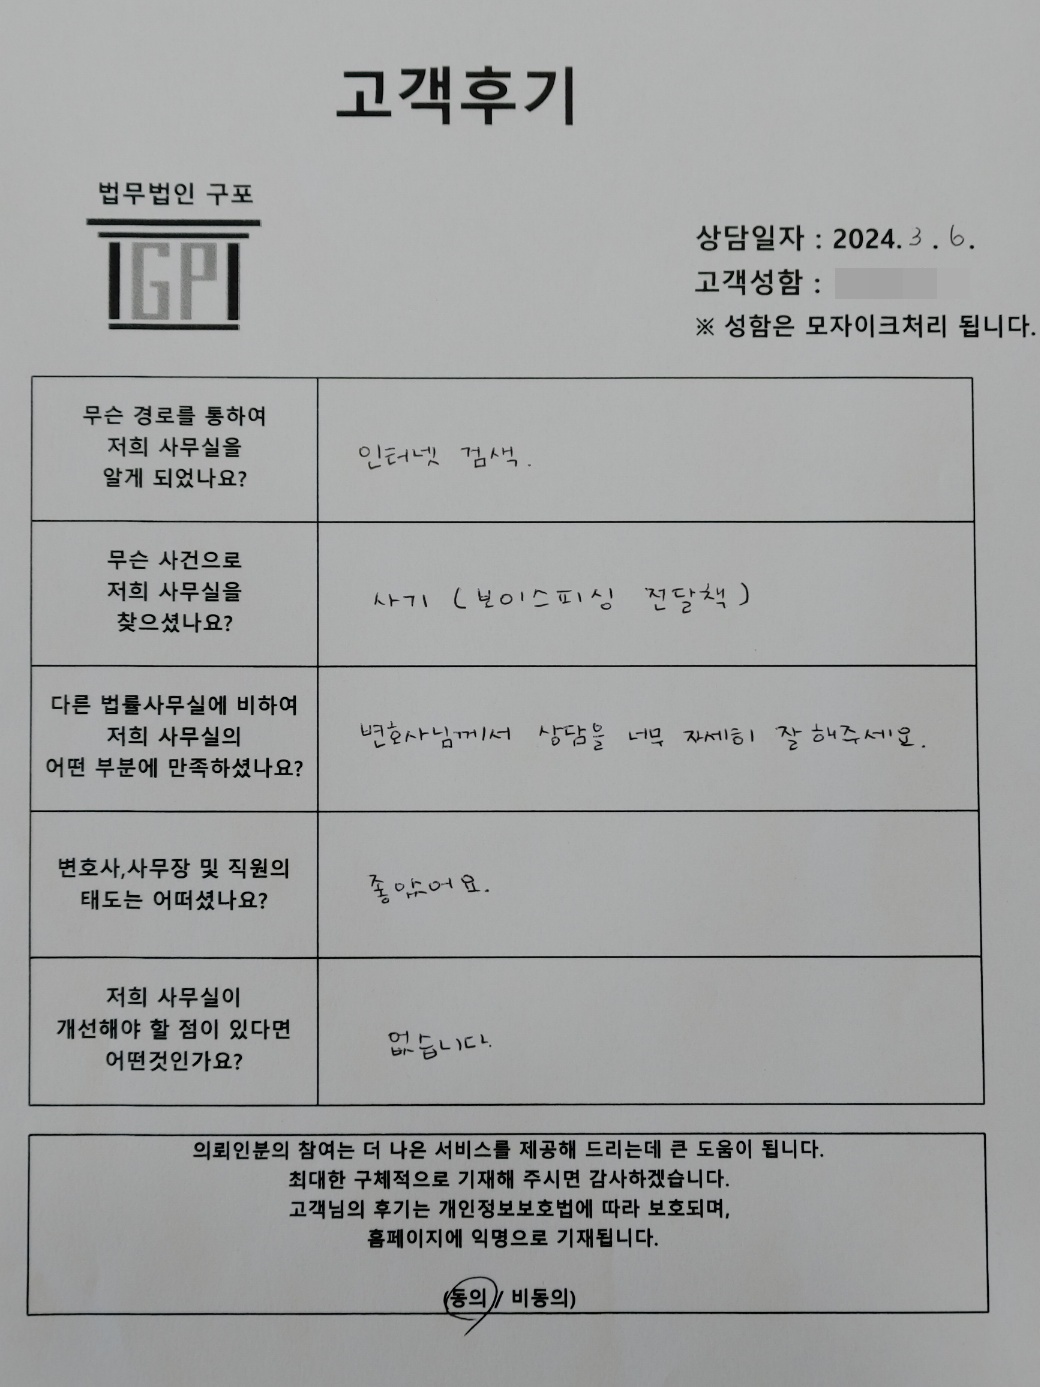 고객후기
법무법인 구포
GP
상담일자 : 2024. 3 . 6.
고객성함 :
※ 성함은 모자이크처리 됩니다.
무슨 경로를 통하여
저희 사무실을
알게 되었나요?
인터넷 검색.
무슨 사건으로
저희 사무실을
찾으셨나요?
사기 (보이스피싱 전달책)
다른 법률사무실에 비하여
저희 사무실의
어떤 부분에 만족하셨나요?
변호사님께서 상담을 너무 자세히 잘 해주세요.
변호사,사무장 및 직원의
태도는 어떠셨나요?
좋았어요.
저희 사무실이
개선해야 할 점이 있다면
어떤것인가요?
없습니다.
의뢰인분의 참여는 더 나은 서비스를 제공해 드리는데 큰 도움이 됩니다.
최대한 구체적으로 기재해 주시면 감사하겠습니다.
고객님의 후기는 개인정보보호법에 따라 보호되며,
홈페이지에 익명으로 기재됩니다.
(동의 / 비동의)